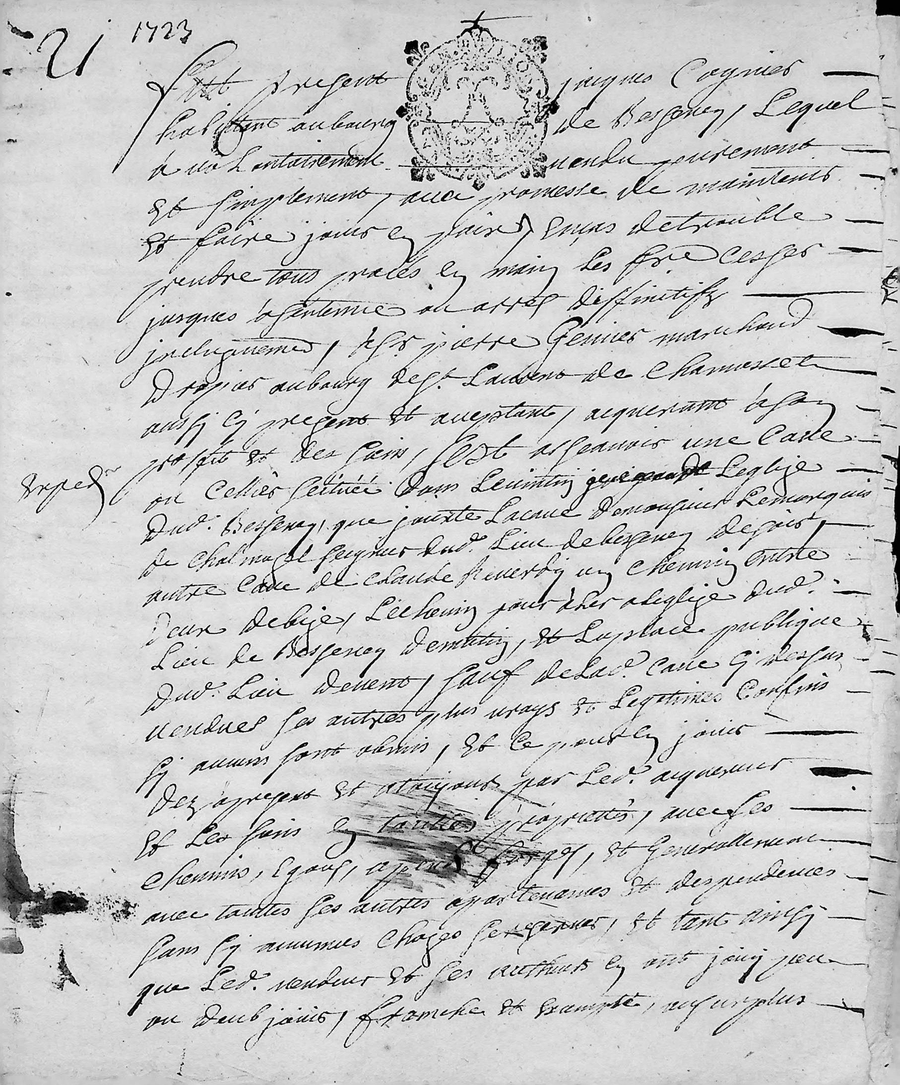 21 1723
Fust present jacques Cognier
habittant au bourg de Bessenay, Lequel
a vollontairement vendu purement
Et simplement, avec promesse de maintenir
Et faire jouir en paix, En cas de trouble
prendre tous procès en main Les fre cesser
jusques à sentence ou arrest deffinitifz
incluzivement, à sr pierre Genier marchand
drapier au bourg de st Laurent de Chamosset
aussy cy present Et aceptant, aquerant à son
proffit Et des siens, sest assçavoir une Cave
ou Cellier scittué dans Le
Expedie
L'eglize
dud. Bessenay, que jouxte La cave de monsieur Le marquis
de Chalmazel seignr dud. Lieu de bessenay de soir,
autre Cave de Claude Reverdy un Chemin Entre
deux de bize, Le chemin pour aller a l'eglize dud.
Lieu de Bessenay de matin, Et La place publique
dud. Lieu de vent, sauf de Lad. Cave cy dessus
vendue ses autres plus vrays Et Legitimes Confins
sy aucuns sont obmis, Et Ce pour en jouir
dez à present Et a toujours par Led. aquereur
Et Les siens En toutte propriettés, avec ses
Chemins, Egous, Et Generallement
avec touttes ses autres apartenances Et despendences
sans sy aucunnes Chozes se reserver, Et tant ainsy
que Led. vendeur Et ses autheurs en ont jouy peu
ou deub jouir, franche Et Exempte, au surplus